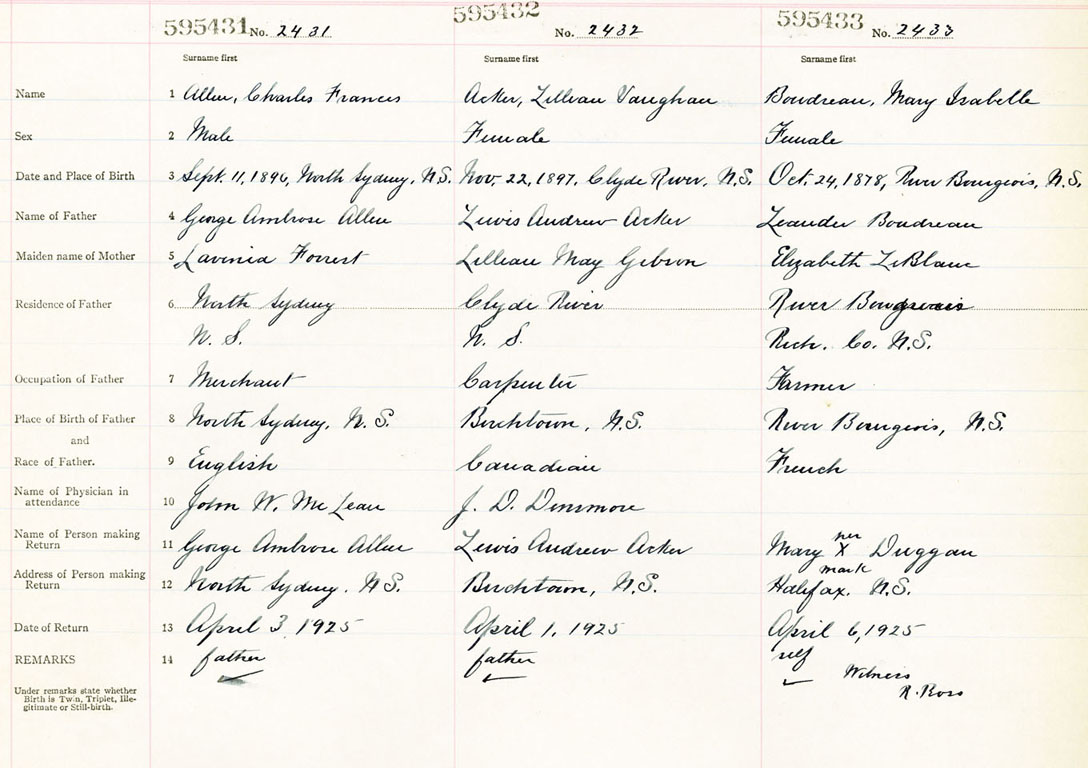 595431 No. 2431 595432 No. 2432 595433 No. 2433
Surname first Surname first Surname first
Name 1 Allen, Charles Francis Acker, Lillian Vaughan Boudreau, Mary Isabelle
Sex 2 Male Female Female
Date and Place of Birth 3 Sept. 11, 1896, North Sydney, N.S. Nov. 22, 1897, Clyde River, N.S. Oct. 24, 1878, River Bourgeois, N.S.
Name of Father 4 George Ambrose Allen Lewis Andrew Acker Leander Boudreau
Maiden name of Mother 5 Lavinia Forrest Lillian May Gibson Elizabeth LeBlanc
Residence of Father 6 North Sydney Clyde River River Bourgeois
N. S. N. S. Rich. Co. N.S.
Occupation of Father 7 Merchant Carpenter Farmer
Place of Birth of Father 8 North Sydney, N.S. Birchtown, N.S. River Bourgeois, N.S.
and
Race of Father. 9 English Canadian French
Name of Physician in
attendance 10 John W. McLean J. D. Densmore
Name of Person making
Return 11 George Ambrose Allen Lewis Andrew Acker Mary her X mark Duggan
Address of Person making
Return 12 North Sydney. N.S. Birchtown, N.S. Halifax. N.S.
Date of Return 13 April 3, 1925 April 1, 1925 April 6, 1925
REMARKS 14 father father self
Witness
R. Ross
Under remarks state whether
Birth is Twin, Triplet, Ille-
gitimate or Still-birth.